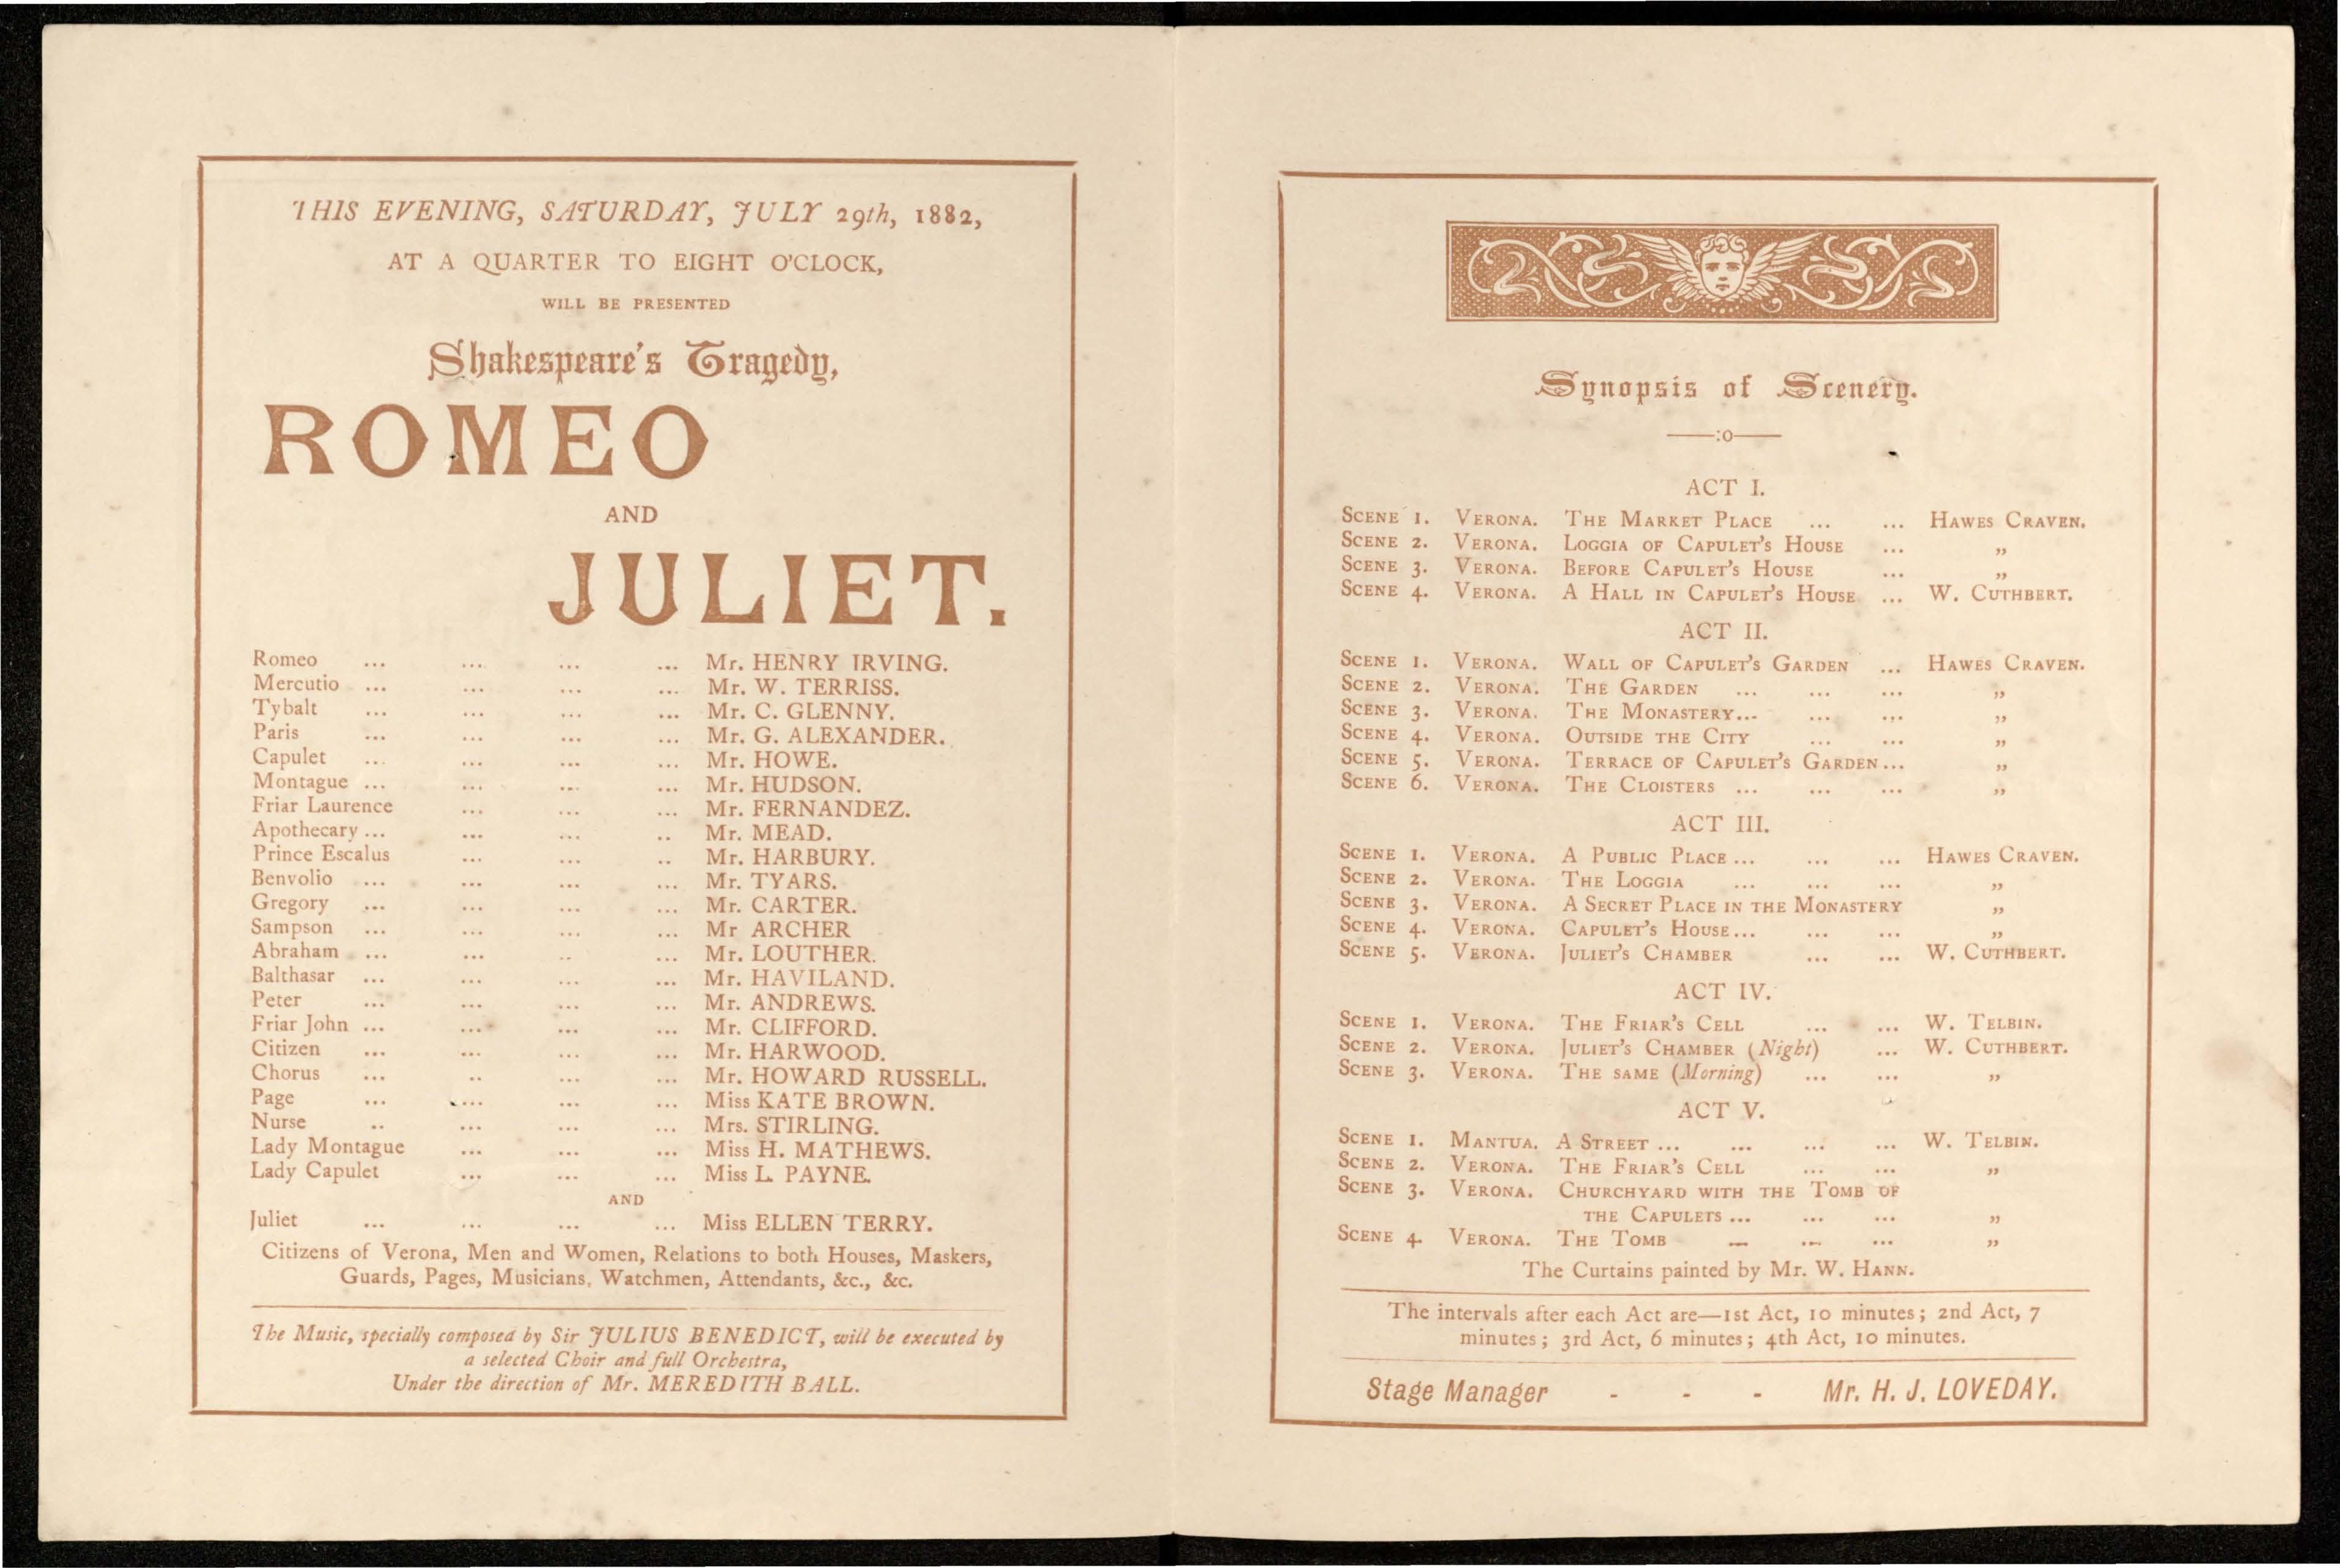 THIS EVENING, SATURDAY, JULY 29th, 1882,
AT A QUARTER TO EIGHT O'CLOCK,
WILL BE PRESENTED
Shakespeare's Tragedy,
ROMEO
AND
JULIET.
Romeo ... ... ... ... Mr. HENRY IRVING.
Mercutio ... ... ... ... Mr. W. TERRISS.
Tybalt ... ... ... ... Mr. C. GLENNY.
Paris ... ... ... ... Mr. G. ALEXANDER.
Capulet ... ... ... ... Mr. HOWE.
Montague ... ... ... ... Mr. HUDSON.
Friar Laurence ... ... ... Mr. FERNANDEZ.
Apothecary ... ... ... .. Mr. MEAD.
Prince Escalus ... ... .. Mr. HARBURY.
Benvolio ... ... ... ... Mr. TYARS.
Gregory ... ... ... ... Mr. CARTER.
Sampson ... ... ... ... Mr ARCHER
Abraham ... ... .. ... Mr. LOUTHER.
Balthasar ... ... ... ... Mr. HAVILAND.
Peter ... ... ... ... Mr. ANDREWS.
Friar John ... ... ... ... Mr. CLIFFORD.
Citizen ... ... ... ... Mr. HARWOOD.
Chorus ... .. ... ... Mr. HOWARD RUSSELL.
Page ... .... ... ... Miss KATE BROWN.
Nurse .. ... ... ... Mrs. STIRLING.
Lady Montague ... ... ... Miss H. MATHEWS.
Lady Capulet ... ... ... Miss L. PAYNE.
AND
Juliet ... ... ... ... Miss ELLEN TERRY.
Citizens of Verona, Men and Women, Relations to both Houses, Maskers,
Guards, Pages, Musicians, Watchmen, Attendants, &c., &c.
The Music, specially composed by Sir JULIUS BENEDICT, will be executed by
a selected Choir and full Orchestra,
Under the direction of Mr. MEREDITH BALL.
Synopsis of Scenery.
——:o——
ACT I.
SCENE 1. VERONA. THE MARKET PLACE ... ... HAWES CRAVEN.
SCENE 2. VERONA. LOGGIA OF CAPULET'S HOUSE ... „
SCENE 3. VERONA. BEFORE CAPULET'S HOUSE ... „
SCENE 4. VERONA. A HALL IN CAPULET'S HOUSE ... W. CUTHBERT.
ACT II.
SCENE 1. VERONA. WALL OF CAPULET'S GARDEN ... HAWES CRAVEN.
SCENE 2. VERONA. THE GARDEN ... ... ... „
SCENE 3. VERONA. THE MONASTERY... ... ... „
SCENE 4. VERONA. OUTSIDE THE CITY ... ... „
SCENE 5. VERONA. TERRACE OF CAPULET'S GARDEN... „
SCENE 6. VERONA. THE CLOISTERS ... ... ... „
ACT III.
SCENE 1. VERONA. A PUBLIC PLACE... ... ... HAWES CRAVEN.
SCENE 2. VERONA. THE LOGGIA ... ... ... „
SCENE 3. VERONA. A SECRET PLACE IN THE MONASTERY „
SCENE 4. VERONA. CAPULET'S HOUSE... ... ... „
SCENE 5. VERONA. JULIET'S CHAMBER ... ... W. CUTHBERT.
ACT IV.
SCENE 1. VERONA. THE FRIAR'S CELL ... ... W. TELBIN.
SCENE 2. VERONA. JULIET'S CHAMBER (Night) ... W. CUTHBERT.
SCENE 3. VERONA. THE SAME (Morning) ... ... „
ACT V.
SCENE 1. MANTUA. A STREET ... ... ... ... W. TELBIN.
SCENE 2. VERONA. THE FRIAR'S CELL ... ... „
SCENE 3. VERONA. CHURCHYARD WITH THE TOMB OF
THE CAPULETS ... ... ... „
SCENE 4. VERONA. THE TOMB ... ... ... „
The Curtains painted by Mr. W. HANN.
The intervals after each Act are—1st Act, 10 minutes; 2nd Act, 7
minutes; 3rd Act, 6 minutes; 4th Act, 10 minutes.
Stage Manager - - - Mr. H. J. LOVEDAY.